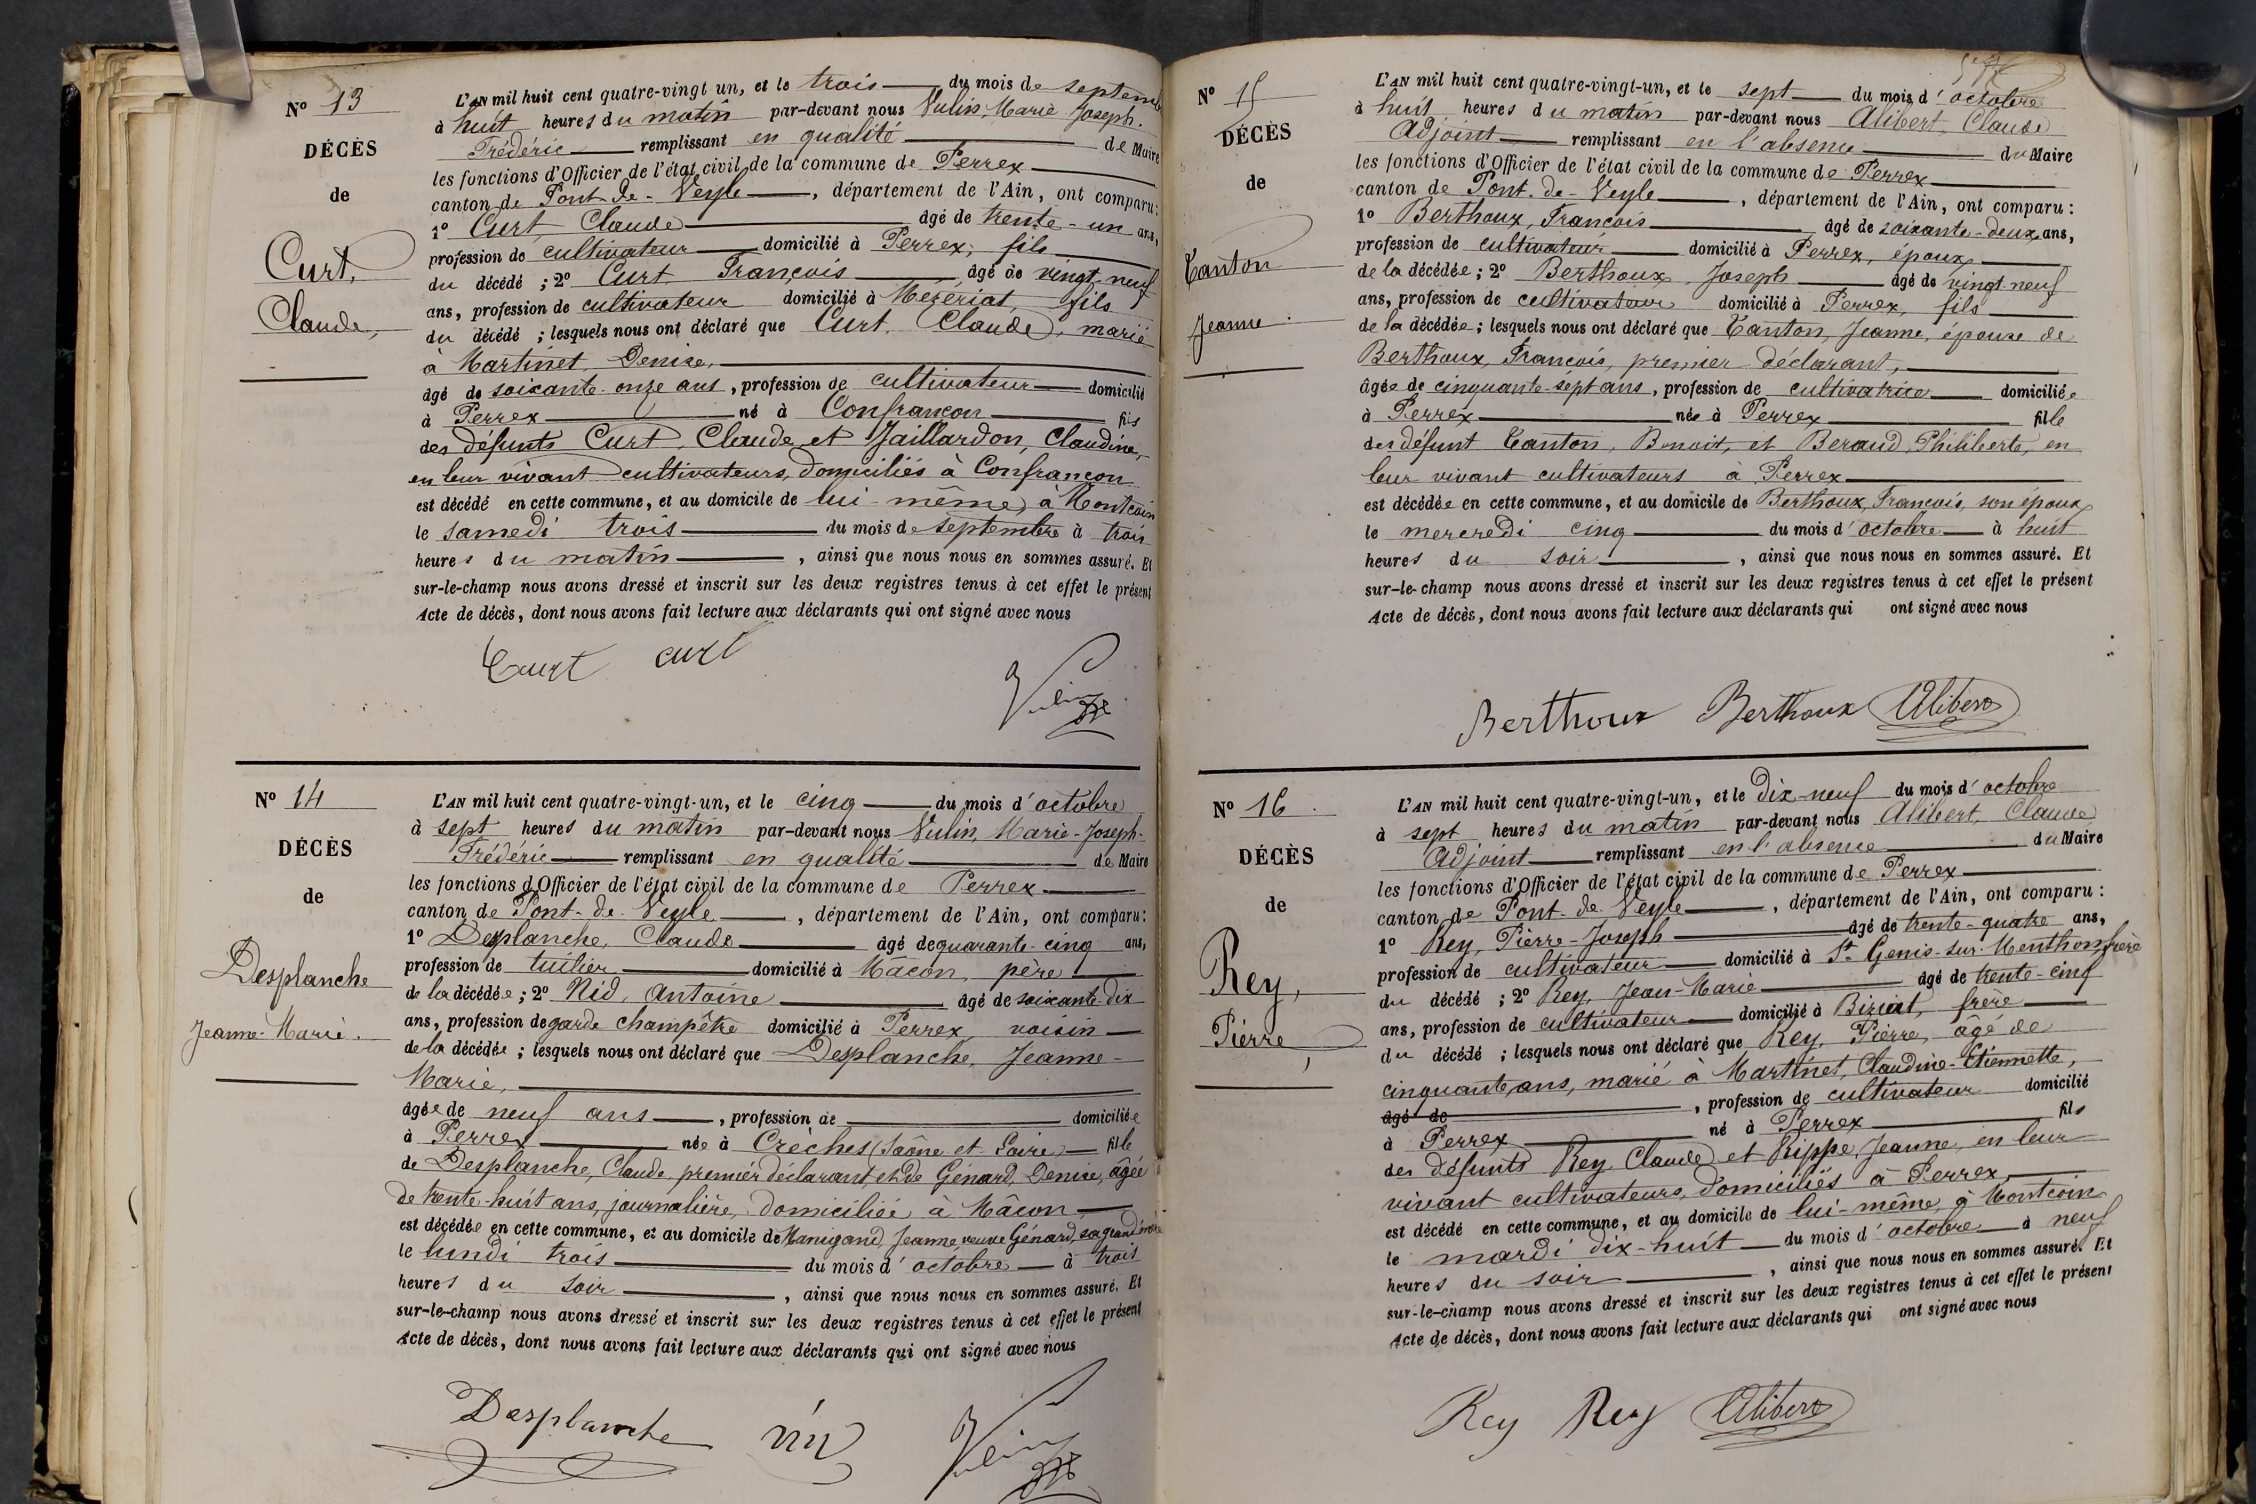 N° 13
DÉCÈS
de
Curt,
Claude,
L'AN mil huit cent quatre-vingt un, et le trois du mois de septemb
à huit heures du matin par-devant nous Vulin, Marie Joseph-
Frédéric remplissant en qualité de Maire
les fonctions d'Officier de l'état civil de la commune de Perrex
canton de Pont-de-Veyle, département de l'Ain, ont comparu:
1° Curt, Claude âgé de trente-un ans,
profession de cultivateur domicilié à Perrex, fils
du décédé ; 2° Curt François âgé de vingt-neuf
ans, profession de cultivateur domicilié à Mézériat, fils
du décédé ; lesquels nous ont déclaré que Curt, Claude, marié
à Martinet, Denise,
âgé de soixante-onze ans, profession de cultivateur domicilié
à Perrex né à Confrançon fils
des défunts Curt, Claude et Jaillardon, Claudine,
en leur vivant cultivateurs, domiciliés à Confrançon
est décédé en cette commune, et au domicile de lui-même, à Montcoin
le samedi trois du mois de septembre à trois
heures du matin, ainsi que nous nous en sommes assuré. Et
sur-le-champ nous avons dressé et inscrit sur les deux registres tenus à cet effet le présent
Acte de décès, dont nous avons fait lecture aux déclarants qui ont signé avec nous
Curt curt
N° 14
DÉCÈS
de
Desplanche
Jeanne-Marie.
L'AN mil huit cent quatre-vingt-un, et le cinq du mois d'octobre
à sept heures du matin par-devant nous Vulin, Marie-Joseph-
Frédéric remplissant en qualité de Maire
les fonctions d'Officier de l'état civil de la commune de Perrex
canton de Pont-de-Veyle, département de l'Ain, ont comparu:
1° Desplanche, Claude âgé de quarante-cinq ans,
profession de tuilier domicilié à Mâcon, père
de la décédée ; 2° Nid, Antoine âgé de soixante-dix
ans, profession de garde champêtre domicilié à Perrex, voisin
de la décédée ; lesquels nous ont déclaré que Desplanche, Jeanne-
Marie,
âgée de neuf ans, profession de domiciliée
à Perrex née à Crèches (Saône et Loire) fille
de Desplanche, Claude, premier déclarant, et de Génard, Denise, âgée
de trente-huit ans, journalière, domiciliée à Mâcon
est décédée en cette commune, et au domicile de Manigand, Jeanne, veuve Génard, sa grand'mère
le lundi trois du mois d'octobre à trois
heures du soir, ainsi que nous nous en sommes assuré. Et
sur-le-champ nous avons dressé et inscrit sur les deux registres tenus à cet effet le présent
Acte de décès, dont nous avons fait lecture aux déclarants qui ont signé avec nous
Desplanche
N° 15
DÉCÈS
de
Canton
Jeanne
L'AN mil huit cent quatre-vingt-un, et le sept du mois d'octobre
à huit heures du matin par-devant nous Alibert, Claude
Adjoint remplissant en l'absence du Maire
les fonctions d'Officier de l'état civil de la commune de Perrex
canton de Pont-de-Veyle, département de l'Ain, ont comparu :
1° Berthoux, François âgé de soixante-deux ans,
profession de cultivateur domicilié à Perrex, époux
de la décédée ; 2° Berthoux, Joseph âgé de vingt-neuf
ans, profession de cultivateur domicilié à Perrex, fils
de la décédée ; lesquels nous ont déclaré que Canton, Jeanne, épouse de
Berthoux, François, premier déclarant,
âgée de cinquante-sept ans, profession de cultivatrice domiciliée
à Perrex née à Perrex fille
des défunt Canton, Benoit, et Beraud, Philiberte, en
leur vivant cultivateurs à Perrex
est décédée en cette commune, et au domicile de Berthoux, François, son époux
le mercredi cinq du mois d'octobre à huit
heures du soir, ainsi que nous nous en sommes assuré. Et
sur-le-champ nous avons dressé et inscrit sur les deux registres tenus à cet effet le présent
Acte de décès, dont nous avons fait lecture aux déclarants qui ont signé avec nous
Berthoux Berthoux Alibert
N° 16
DÉCÈS
de
Rey,
Pierre,
L'AN mil huit cent quatre-vingt-un, et le dix-neuf du mois d'octobre
à sept heures du matin par-devant nous Alibert, Claude
Adjoint remplissant en l'absence du Maire
les fonctions d'Officier de l'état civil de la commune de Perrex
canton de Pont-de-Veyle, département de l'Ain, ont comparu :
1° Rey, Pierre-Joseph âgé de trente-quatre ans,
profession de cultivateur domicilié à St Genis-sur-Menthon, frère
du décédé ; 2° Rey, Jean-Marie âgé de trente-cinq
ans, profession de cultivateur domicilié à Biziat, frère
du décédé ; lesquels nous ont déclaré que Rey, Pierre, âgé de
cinquante ans, marié à Martinet, Claudine-Etiennette,
âgé de, profession de cultivateur domicilié
à Perrex né à Perrex fils
des défunts Rey Claude et Rippe, Jeanne, en leur
vivant cultivateurs, domiciliés à Perrex,
est décédé en cette commune, et au domicile de lui-même, à Montcoin
le mardi dix-huit du mois d'octobre à neuf
heures du soir, ainsi que nous nous en sommes assuré. Et
sur-le-champ nous avons dressé et inscrit sur les deux registres tenus à cet effet le présent
Acte de décès, dont nous avons fait lecture aux déclarants qui ont signé avec nous
Rey Rey Alibert